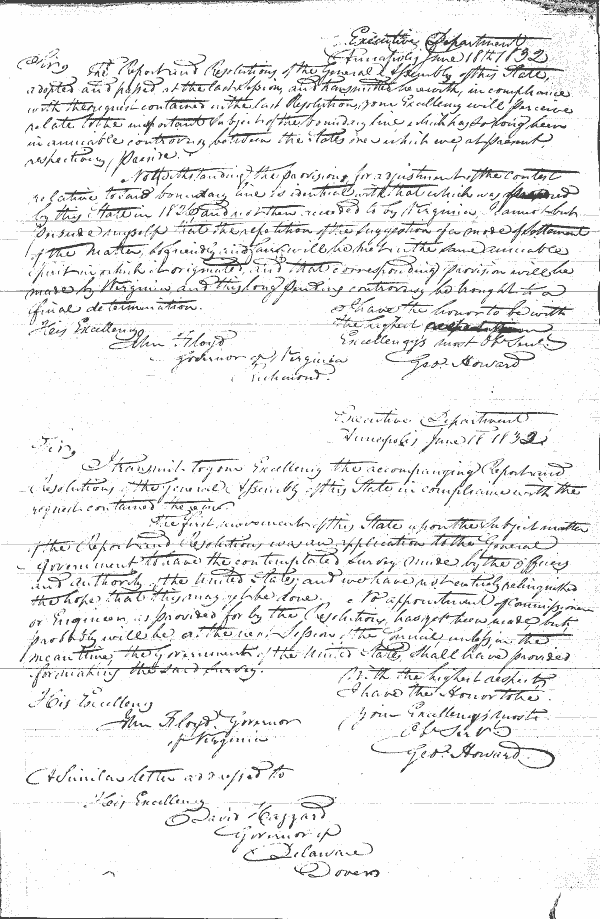 Executive Department
Annapolis June 18th 1832
Sir,
The Report and Resolutions of the General Assembly of this State,
adopted and passed at the last session, and transmitted herewith, in compliance
with the request contained in the last Resolution, your Excellency will perceive
relate to the important subject of the boundary line which has so long been
in amicable controversy between the States over which we, at present,
respectively, preside.
Notwithstanding the provisions for adjustment of the contest
relative to our boundary line is identical with that which was
by this State in 1825 and not then acceded to by Virginia, I cannot but
persuade myself that the repetition of the suggestion of a mode of settlement
of the matter, so friendly and frank will be met in the same amicable
spirit in which it originated, and that corresponding provision will be
made by Virginia and this long pending controversy be brought to a
final determination.
I have the honor to be with
the highest
His Excellency
Excellency's most Ob Servt.
John Floyd
Geo. Howard
Governor of Virginia
Richmond.
Executive Department
Annapolis June 18 1832
Sir,
I transmit to your Excellency the accompanying Report and
Resolutions of the General Assembly of this State in compliance with the
request contained
The first movement of this State upon the subject matter
of the Report and Resolutions was an application to the General
Government to have the contemplated survey made by the Officers
and Authority of the United States, and we have not entirely relinquished
the hope that this may yet be done. No appointment of Commissioner
or Engineer, as provided for by the Resolutions, has yet been made but
probably will be, at the next Session of the Council unless in the
mean time, the Government of the United States, shall have provided
for making the said survey.
With the highest respect
I have the Honor to be
His Excellency
your Excellency's most
John Floyd Governor
Ob Servt
of Virginia
Geo. Howard
A Similar letter addressed to
His Excellency
David Hazzard
Governor of
Delaware
Dover